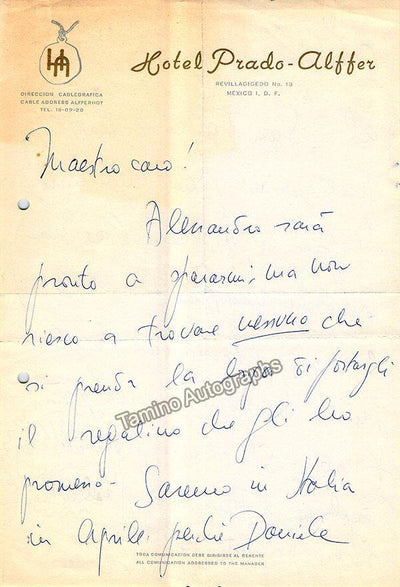 HA
Hotel Prado-Alffer
REVILLAGIGEDO No. 13
MEXICO 1, D. F.
DIRECCION CABLEGRAFICA
CABLE ADDRESS ALFFERHOT
TEL. 18-09-28
Maestro caro!
Alessandro sarà
pronto a spararmi, ma non
riesco a trovare nessuno che
si prenda la briga di portargli
il regalino che gli ho
promesso - Saremo in Italia
in Aprile perchè Daniele
Tamino Autographs
TODA COMUNICACION DEBE DIRIGIRSE AL GERENTE
ALL COMMUNICATION ADDRESSED TO THE MANAGER